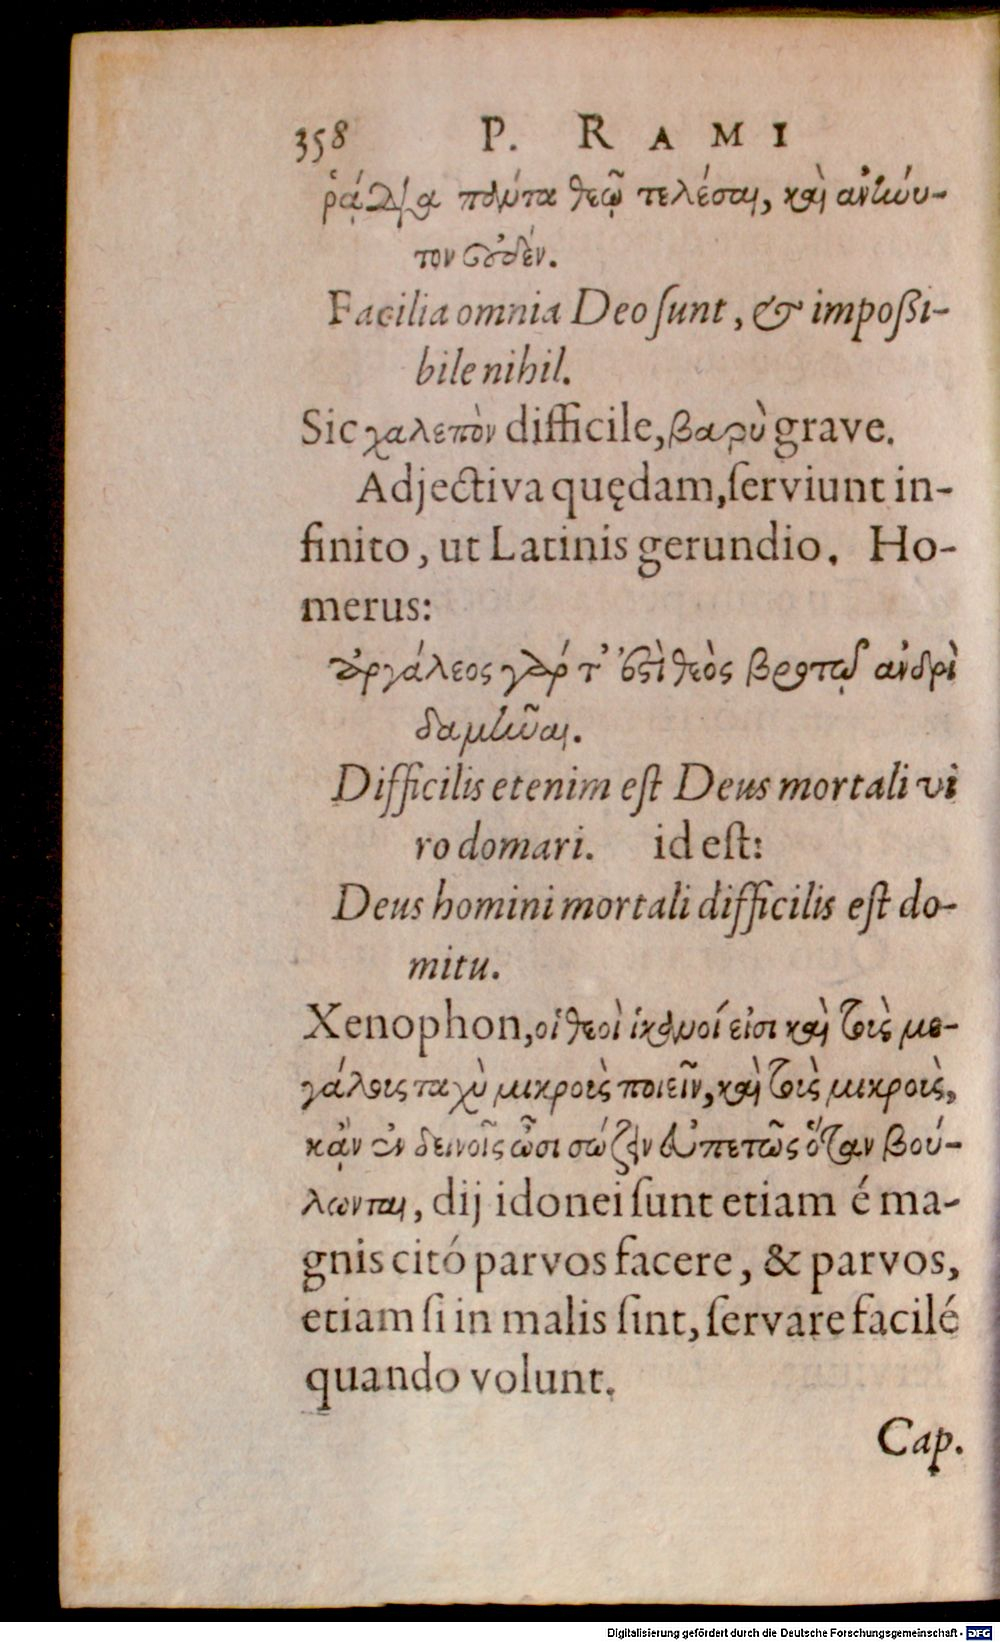 358 P. RAMI
ῥᾴδια πάντα θεῷ τελέσαι, καὶ ἀνήνυ-
τον οὐδέν.
Facilia omnia Deo ſunt, & impoßi-
bile nihil.
Sic χαλεπὸν difficile, βαρὺ grave.
Adjectiva quędam, ſerviunt in-
finito, ut Latinis gerundio. Ho-
merus:
ἀργάλεος γάρ τ' ἐστὶ θεὸς βροτῷ ἀνδρὶ
δαμῆναι.
Difficilis etenim eſt Deus mortali vi
ro domari. id eſt:
Deus homini mortali difficilis eſt do-
mitu.
Xenophon, οἱ θεοὶ ἱκανοί εἰσι καὶ τοὺς με-
γάλοις ταχὺ μικροὺς ποιεῖν, καὶ τοὺς μικροὺς,
κᾂν ἐν δεινοῖς ὦσι σώζειν εὐπετῶς ὅταν βού-
λωνται, dij idonei ſunt etiam é ma-
gnis citó parvos facere, & parvos,
etiam ſi in malis ſint, ſervare facilé
quando volunt.
Cap.
Digitalisierung gefördert durch die Deutsche Forschungsgemeinschaft - DFG